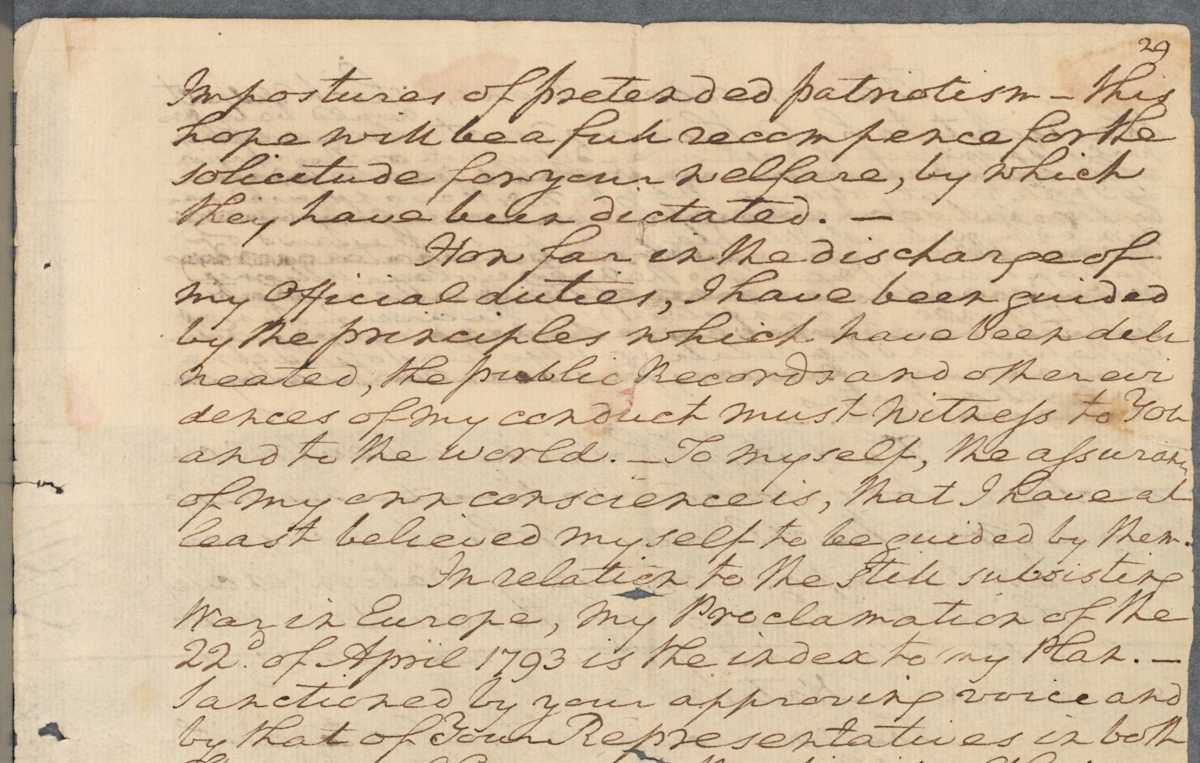 29
Impostures of pretended patriotism – this
hope will be a full recompence for the
solicitude for your welfare, by which
they have been dictated. –
How far in the discharge of
my Official duties, I have been guided
by the principles which have been deli
neated, the public Records and other evi
dences of my conduct must Witness to You
and to the world. – To myself, the assurance
of my own conscience is, that I have at
least believed myself to be guided by them.
In relation to the still subsisting
War in Europe, my Proclamation of the
22d. of April 1793 is the index to my Plan. –
Sanctioned by your approving voice and
by that of Your Representatives in both